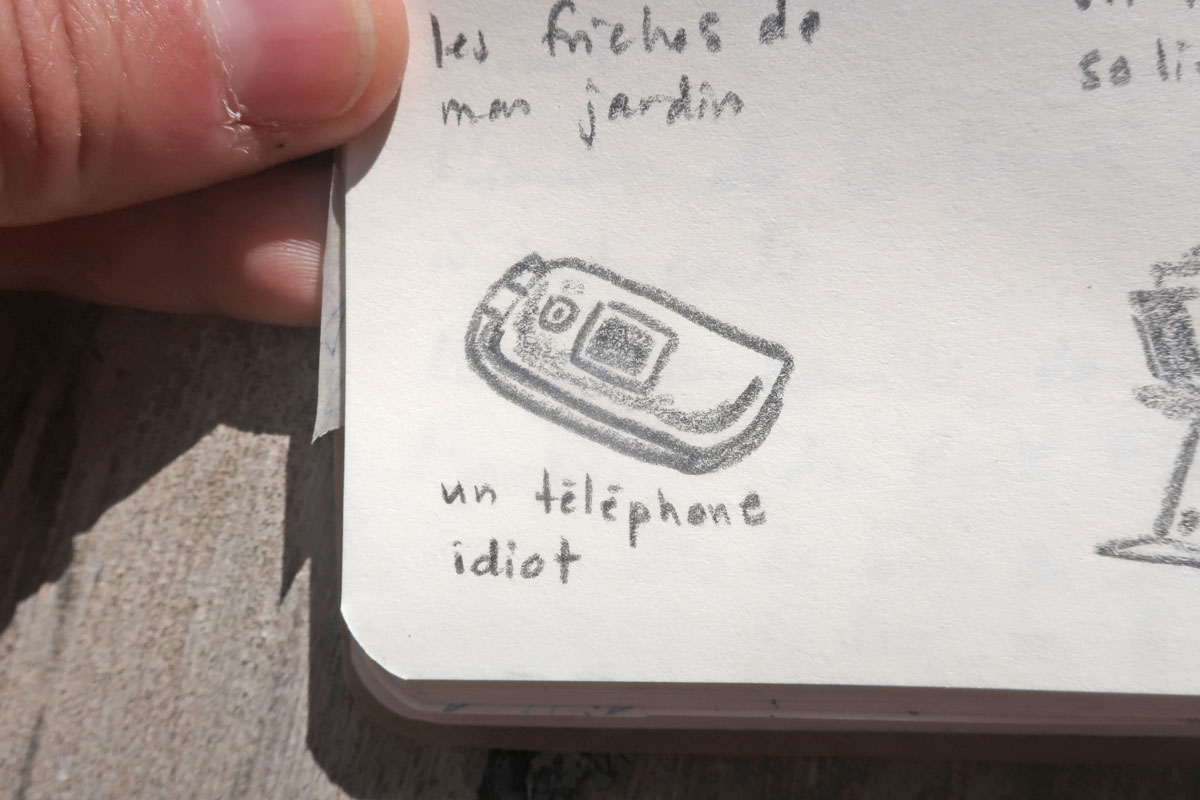 les friches de
mon jardin
so li
un téléphone
idiot